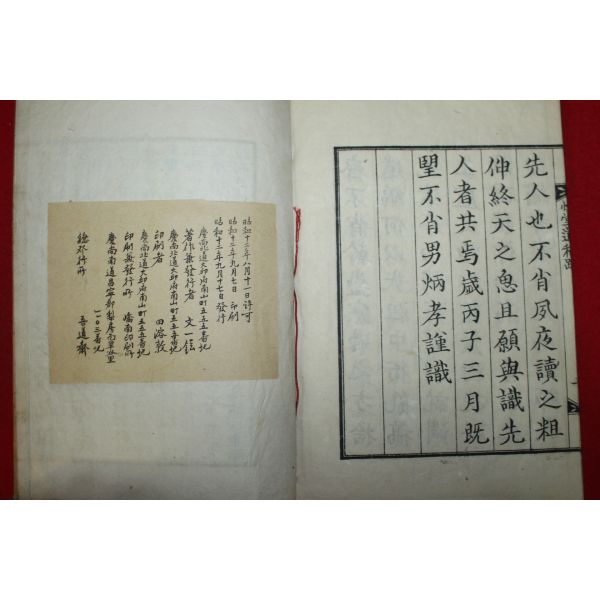 先人也不肖夙夜讀之粗
伸終天之息且願與識先
人者共焉歲丙子三月既
望不肖男炳孝謹識
昭和十二年八月十一日許可
昭和十二年九月七日 印刷
昭和十二年九月十七日發行
慶尚北道大邱府南山町五五五番地
著作兼發行者 文一鉉
慶尚北道大邱府南山町五五五番地
印刷者 田溶敦
慶尚北道大邱府南山町五五五番地
印刷兼發行所 嶠南印刷所
慶尚南道昌寧郡梨房面
一一〇三番地
總發行所 吾道齋